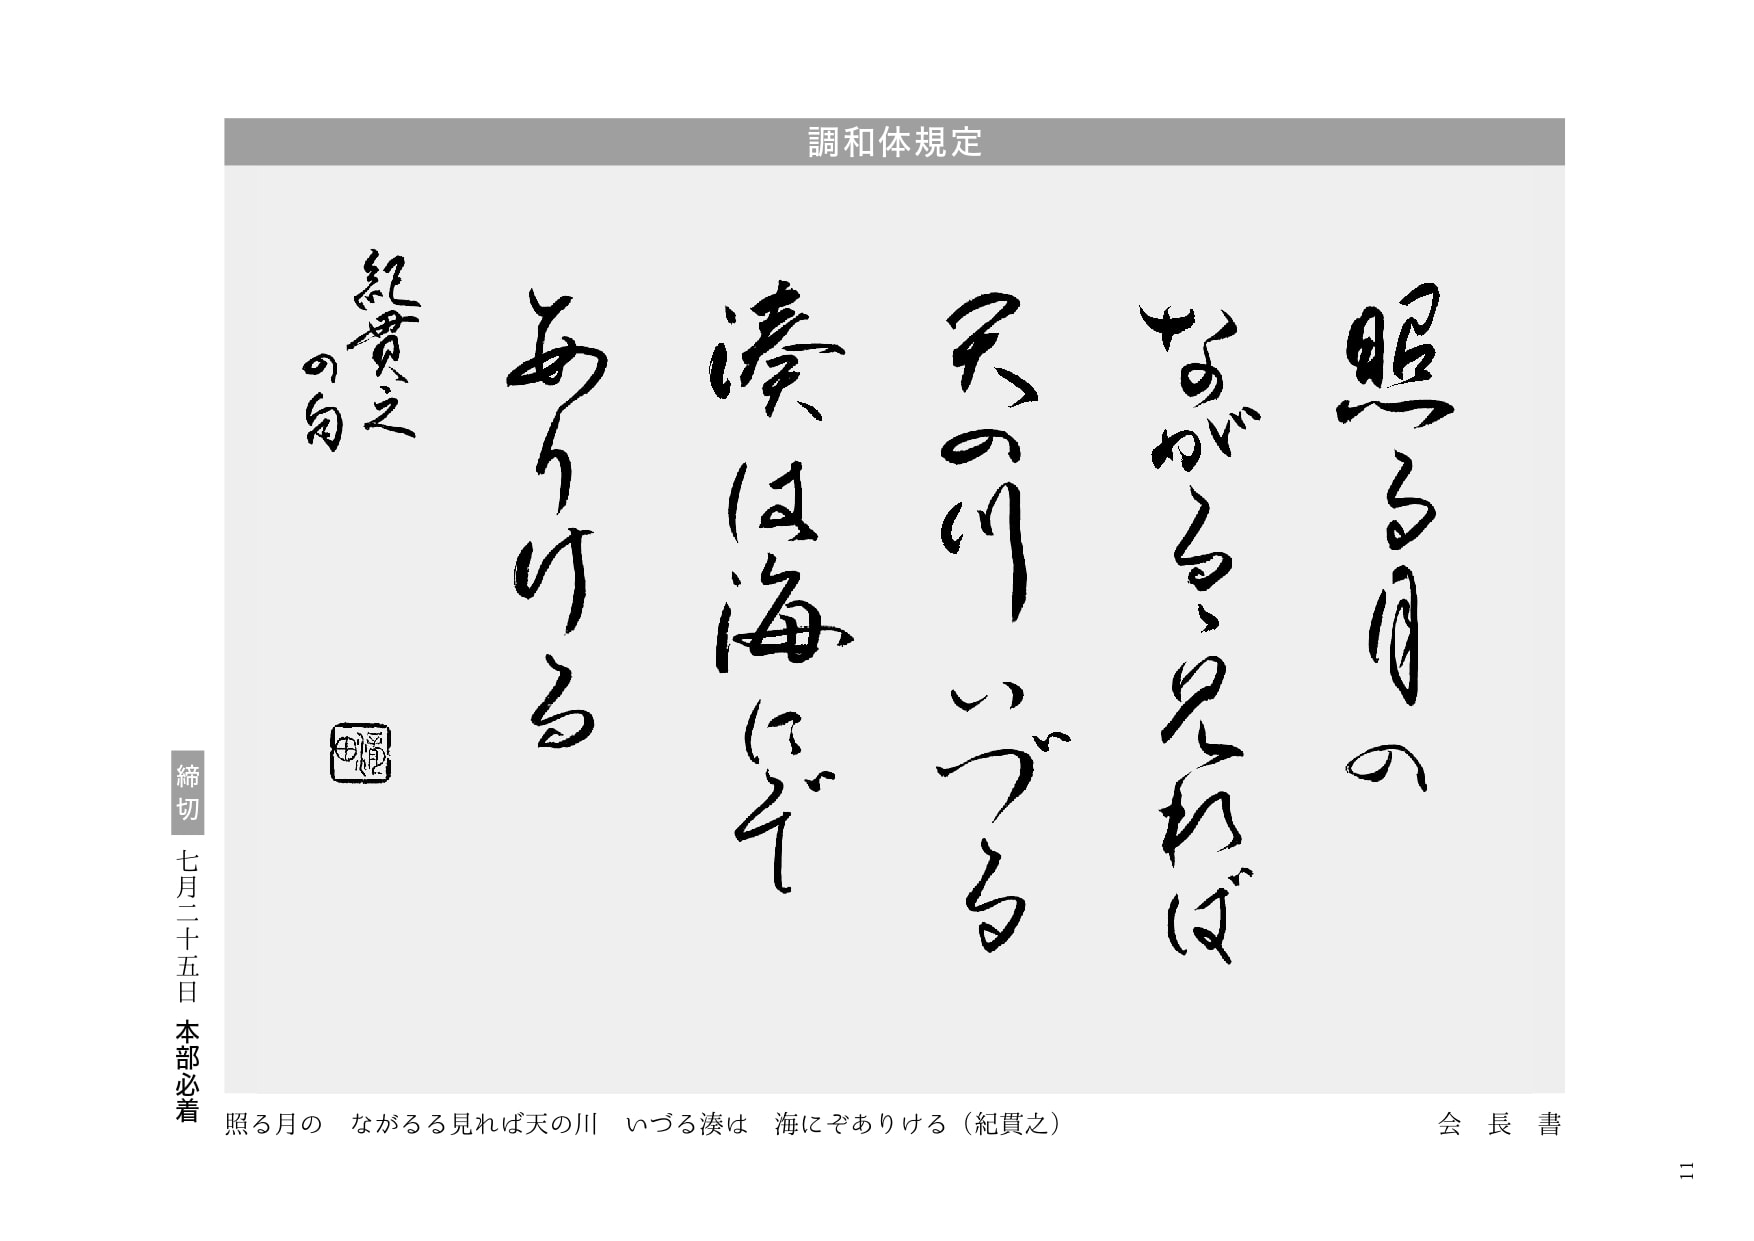 調和体規定
照る月の
ながるゝ見れば
天の川いづる
湊は海にぞ
ありける
紀貫之
の句
締切 七月二十五日 本部必着
照る月の　ながるる見れば天の川　いづる湊は　海にぞありける（紀貫之）
会長書
11